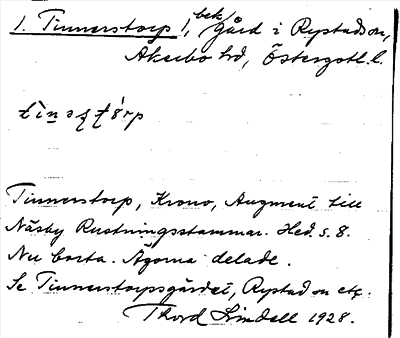 1. Tinnerstorp 1, bek. Gård i Rystads sn,
Åkerbo hd, Östergötl. l.
Tinnerstorp, Krono, Augment till
Näsby Rustningsstammar. Hed. s. 8.
Nu borta. Ägorna delade.
Se Tinnerstorpsgärdet, Rystad sn etc.
Thord Lindell 1928.